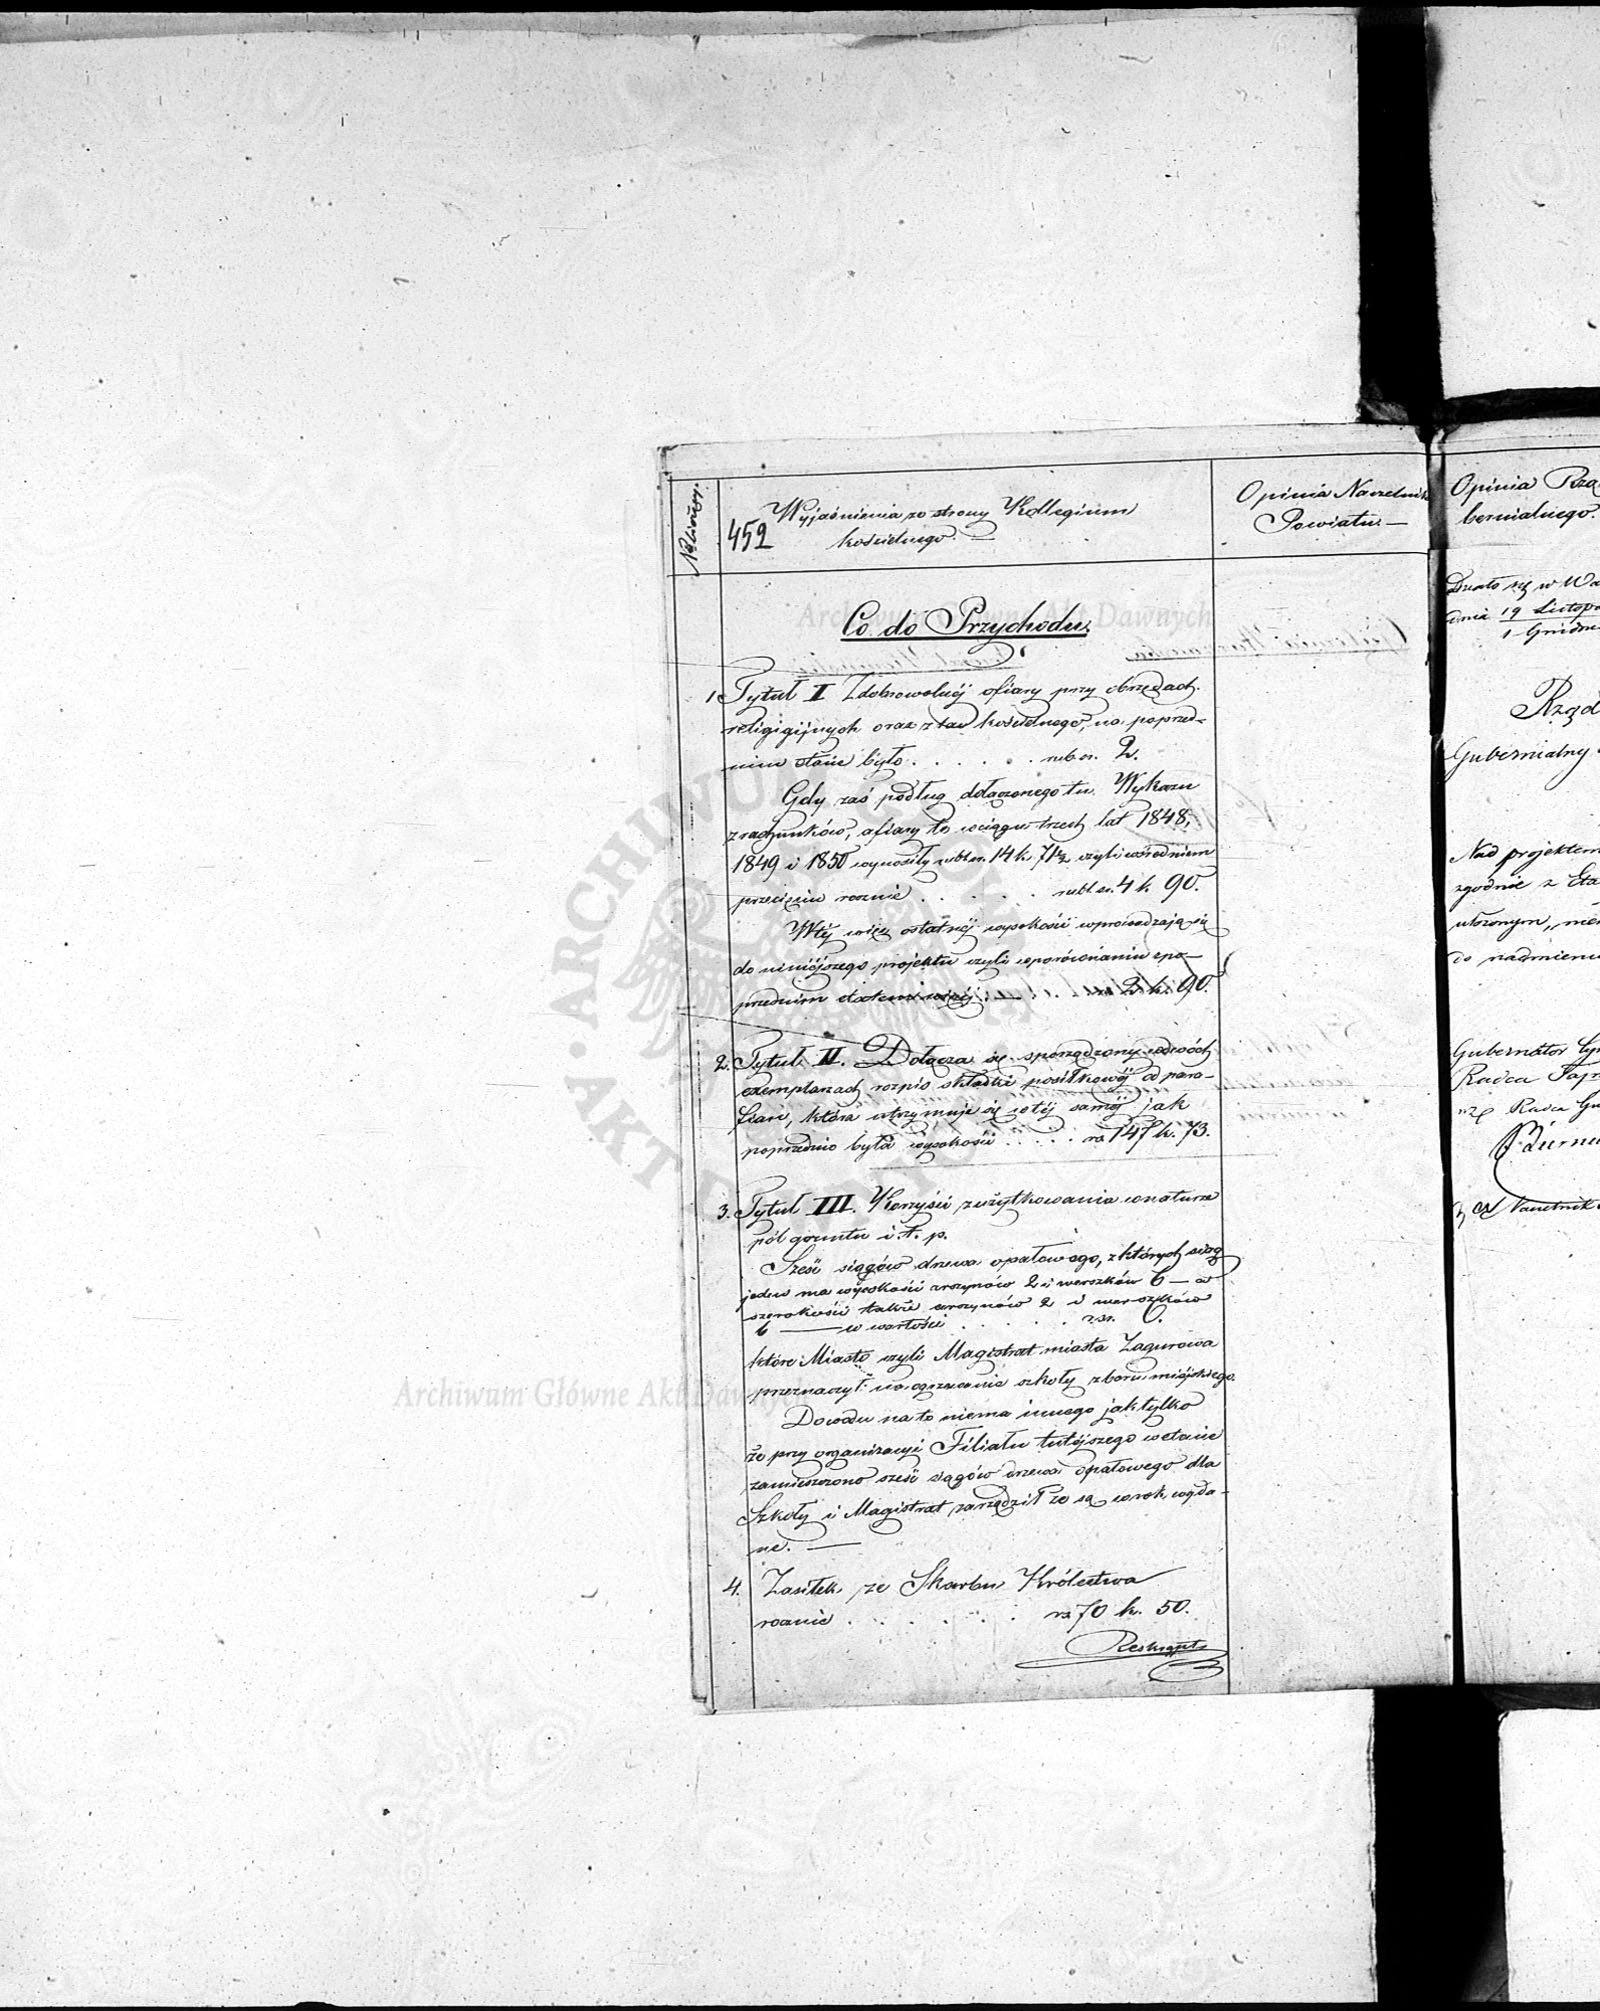 No bieżący.
452
Wyjaśnienia ze strony Kollegium
kościelnego.
Opinia Naczelnik
Powiatu.
Co do Przychodu.
1. Tytuł I Z dobrowolnéj ofiary przy obrzędach
religijnych oraz z ław kościelnego, na poprzed-
nim etacie było . . . . . rub. sr. 2.
Gdy zaś podług dołączonego tu Wykazu
z rachunków, ofiary te wciągu trzech lat 1848,
1849 i 1850 wynosiły rubl. sr. 14 k. 71½ czyli w średniem
przecięciu rocznie . . . . . rubl. sr. 4 k. 90.
W téj więc ostatniéj wysokości wprowadzają się
do niniéjszego projektu czyli w porównaniu z po-
przednim etatem więcéj 2 k. 90.
2. Tytuł II. Dołącza się sporządzony w dwóch
exemplarzach rozpis składki posiłkowéj od para-
fian, która utrzymuje się w téj saméj jak
poprzednio była wysokości . . . . . rs 147 k. 73.
3. Tytuł III. Korzyści z użytkowania w naturze
pól gruntu i t. p.
Sześć siągów drzewa opałowego, z których siąg
jeden ma wysokości arszynów 2 i werszków 6 — a
szerokości także arszynów 2 i werszków
6 — w wartości . . . . . r. sr. 6.
które Miasto czyli Magistrat miasta Zagurowa
przeznaczył na ogrzewanie szkoły zboru miéjskiego.
Dowodu na to niema innego jak tylko
że przy organizacyi Filiału tutéjszego w etacie
zamieszczono sześć siągów drzewa opałowego dla
Szkoły i Magistrat zarządził że są corok wyda-
ne. —
4. Zasiłek ze Skarbu Królestwa
rocznie . . . . . rs 70 k. 50.
Reskrypt
Opinia Rzą
bernialnego.
Działo się w Wa
dnia 19 Listopa
1 Grudni
Rząd
Gubernialny
Nad projektem
zgodnie z Eta
ułożonym,
do nadmieni
Gubernator Cy
Radca
Radca Gu
Naczelnik
Archiwum Główne Akt Dawnych
Archiwum Główne Akt Dawnych
ARCHIWUM
AKT